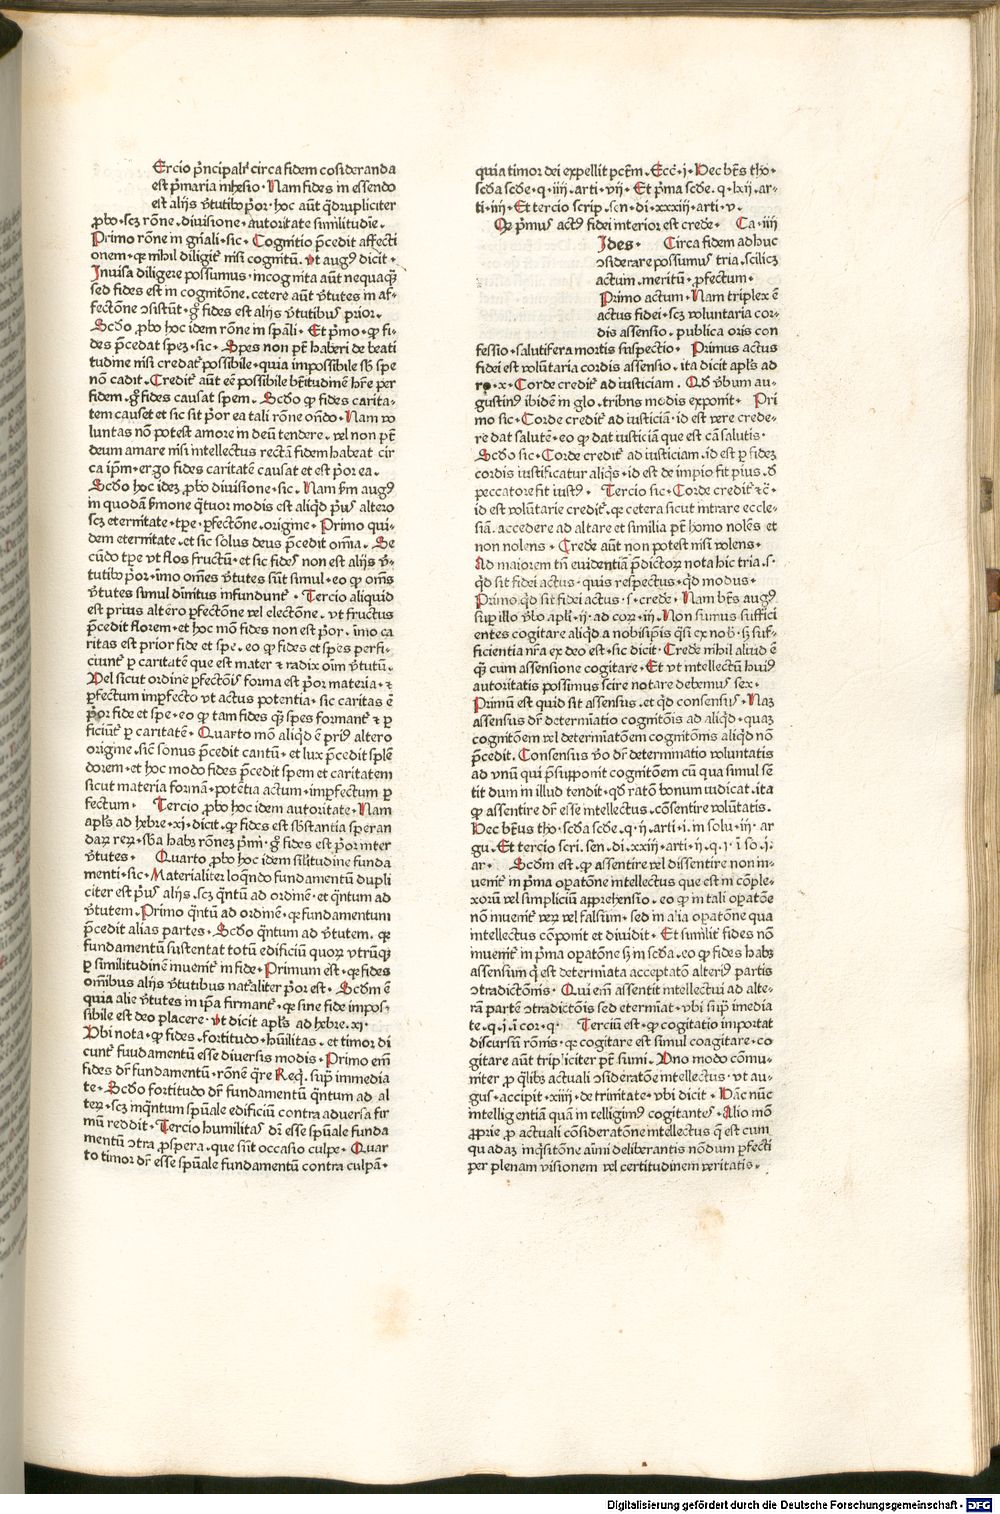 Ercio p̄ncipalr̄ circa fidem cōsideranda
est p̄maria inhesio. Nam fides in essendo
est alijs v̄tutibꝯ p̄or. hoc aūt q̄drupliciter
ꝓbo. scꝫ rōne. diuisione. autoritate similitudīe.
Primo rōne in gn̄ali. sic. Cognitio p̄cedit affecti
onem. qꝛ nihil diligit̄ nisi cognitū. vt augꝯ dicit.
Inuisa diligere possumus. incognita aūt nequaqͣ
sed fides est in cognitōne. cetere aūt v̄tutes in af-
fectōne ꝯsistūt. gͦ fides est alijs v̄tutibus prior.
Scd̄o ꝓbo hoc idem rōne in spāli. Et p̄mo. qꝙ fi-
des p̄cedat spez. sic. Spes non pt̄ haberi de beati
tudine nisi credat̄ possibile. quia impossibile sb̄ spe
nō cadit. Credit̄ aūt eē possibile bt̄itudinē hr̄e per
fidem. gͦ fides causat spem. Scd̄o qꝙ fides carita-
tem causet et sic sit p̄or ea tali rōne on̄do. Nam vo
luntas nō potest amore in deū tendere. vel non pt̄
deum amare nisi intellectus rectā fidem habeat cir
ca ip̄m. ergo fides caritatē causat et est p̄or ea.
Scd̄o hoc idez ꝓbo diuisione. sic. Nam km̄ augꝯ
in quodā ẜmone q̄tuor modis est aliqd̄ p̄us altero
scꝫ eternitate. tpe. ꝑfectōne. origine. Primo qui-
dem eternitate. et sic solus deus p̄cedit om̄ia. Se
cūdo tpe vt flos fructū. et sic fides non est alijs v̄-
tutibꝯ p̄or. imo om̄es v̄tutes sūt simul. eo qꝙ om̄s
v̄tutes simul diuinitus infundunt̄. Tercio aliquid
est prius altero ꝑfectōne vel electōne. vt fructus
p̄cedit florem. et hoc mō fides non est p̄or. imo ca
ritas est prior fide et spe. eo qꝙ fides et spes perfi-
ciunt̄ ꝑ caritatē que est mater ⁊ radix oīm v̄tutū.
Vel sicut ordine ꝑfectōis forma est p̄or materia. ⁊
ꝑfectum imꝑfecto vt actus potentia. sic caritas ē
p̄or fide et spe. eo qꝙ tam fides qͣ spes formant̄ ⁊ ꝑ
ficiunt̄ ꝑ caritatē. Quarto mō aliqd̄ ē priꝯ altero
origine. sicē sonus p̄cedit cantū. et lux p̄cedit splē
dorem. et hoc modo fides p̄cedit spem et caritatem
sicut materia formā. potētia actum. imꝑfectum ꝑ
fectum. Tercio ꝓbo hoc idem autoritate. Nam
apls̄ ad hebre. xj. dicit. qꝙ fides est sb̄stantia speran
daꝝ reꝝ. sb̄a habꝫ rōnez p̄mi. gͦ fides est p̄or inter
v̄tutes. Quarto ꝓbo hoc idem silitudine funda
menti. sic. Materialiter loq̄ndo fundamentū dupli
citer est p̄us alijs. scꝫ q̄ntū ad ordinē. et q̄ntum ad
v̄tutem. Primo q̄ntū ad ordinē. qꝛ fundamentum
p̄cedit alias partes. Scd̄o q̄ntum ad v̄tutem. qꝛ
fundamentū sustentat totū edificiū quoꝝ vtrūqꝫ
ꝑ similitudinē inuenit̄ in fide. Primum est. qꝛ fides
om̄ibus alijs v̄tutibus nat̄aliter p̄or est. Scd̄m ē
quia alie v̄tutes in ip̄a firmant̄. qꝛ sine fide impos-
sibile est deo placere. vt dicit apls̄ ad hebre. xj.
Vbi nota. qꝙ fides. fortitudo. hūilitas. et timor di
cunt̄ fuudamentū esse diuersis modis. Primo em̄
fides dr̄ fundamentū. rōnē q̄re Req̄. sup̄ immedia
te. Scd̄o fortitudo dr̄ fundamentū q̄ntum ad al
teꝝ. scꝫ inq̄ntum spūale edificiū contra aduersa fir
mū reddit. Tercio humilitas dr̄ esse spūale funda
mentū ꝯtra ꝓspera. que sūt occasio culpe. Quar
to timor dr̄ esse spūale fundamentū contra culpā.
quia timor dei expellit pctm̄. Ecc̄. j. Hec bt̄s tho.
scd̄a scd̄e. q. iiij. arti. vij. Et p̄ma scd̄e. q. lxij. ar-
ti. iiij. Et tercio scrip. sen. di. xxxiij. arti. v.
Qꝙ p̄mus actꝯ fidei interior est crede. Ca. iiij
Ides. Circa fidem adhuc
ꝯsiderare possumus tria. scilicꝫ
actum. meritū. ꝓfectum.
Primo actum. Nam triplex ē
actus fidei. scꝫ voluntaria cor-
dis assensio. publica oris con
fessio. salutifera mortis suspectio. Primus actus
fidei est volūtaria cordis assensio. ita dicit apls̄ ad
ro. x. Corde credit̄ ad iusticiam. Qd̄ v̄bum au-
gustinꝯ ibidē in glo. tribus modis exponit. Pri
mo sic. Corde credit̄ ad iusticiā. id est vere crede-
re dat salutē. eo qꝙ dat iusticiā que est cā salutis.
Scd̄o sic. Corde credit̄ ad iusticiam. id est ꝑ fidez
cordis iustificatur aliqͥs. id est de impio fit pius. d̄
peccatore fit iustꝯ. Tercio sic. Corde credit̄ ⁊c̄.
id est volūtarie credit̄. qꝛ cetera sicut intrare eccle-
siā. accedere ad altare et similia pt̄ homo nolēs et
non nolens. Crede aūt non potest nisi volens.
Ad maiorem tn̄ euidentiā p̄dictoꝝ nota hic tria. s.
qd̄ sit fidei actus. quis respectus. qd̄ modus.
Primo qd̄ sit fidei actus. s. crede. Nam bt̄s augꝯ
sup illo v̄bo apli. ij. ad cor. iij. Non sumus suffici
entes cogitare aliqd̄ a nobisip̄is q̄si ex nob̄. sꝫ suf-
ficientia nr̄a ex deo est. sic dicit. Crede nihil aliud ē
qͣ cum assensione cogitare. Et vt intellectū huiꝯ
autoritatis possimus scire notare debemus sex.
Primū est quid sit assensus. et qd̄ consensus. Naꝫ
assensus dr̄ determinatio cognitōis ad aliqd̄. quaꝫ
cognitōem vel determinatōem cognitōnis aliqd̄ nō
p̄cedit. Consensus v̄o dr̄ determinatio voluntatis
ad vnū qui p̄supponit cognitōem cū qua simul sē
tit dum in illud tendit. qd̄ ratō bonum iudicat. ita
qꝙ assentire dr̄ esse intellectus. cōsentire volūtatis.
Hec bt̄us tho. scd̄a scd̄e. q. ij. arti. i. in solu. iij. ar
gu. Et tercio scri. sen. di. xxiij. arti. ij. q. j. ī so. j.
ar. Scd̄m est. qꝙ assentire vel dissentire non in-
uenit̄ in p̄ma oꝑatōne intellectus que est in cōple-
xorū vel simpliciū apprehensio. eo qꝙ in tali oꝑatōe
nō inuenit̄ veꝝ vel falsum. sed in alia oꝑatōne qua
intellectus cōponit et diuidit. Et similit̄ fides nō
inuenit̄ in p̄ma oꝑatōne sꝫ in scd̄a. eo qꝙ fides habꝫ
assensum q̄ est determinata acceptatō alteriꝯ partis
ꝯtradictōnis. Qui em̄ assentit intellectui ad alte-
rā partē ꝯtradictōis sed eterminat. vbi sup̄ imedia
te. q. j. ī cor. q. Terciū est. qꝙ cogitatio importat
discursū rōnis. qꝛ cogitare est simul coagitare. co
gitare autē tripliciter pt̄ sumi. Vno modo cōmu-
niter ꝓ qͣlibꝫ actuali ꝯsideratōe intellectus. vt au-
gus. accipit. xiiij. de trinitate. vbi dicit. Hāc nūc
intelligentiā quā in telligimꝯ cogitantes. Alio mō
ꝓprie ꝓ actuali cōsideratōne intellectus q̄ est cum
quadaꝫ inq̄sitōne aīmi deliberantis nōdum ꝑfecti
per plenam visionem vel certitudinem veritatis.
Digitalisierung gefördert durch die Deutsche Forschungsgemeinschaft - DFG